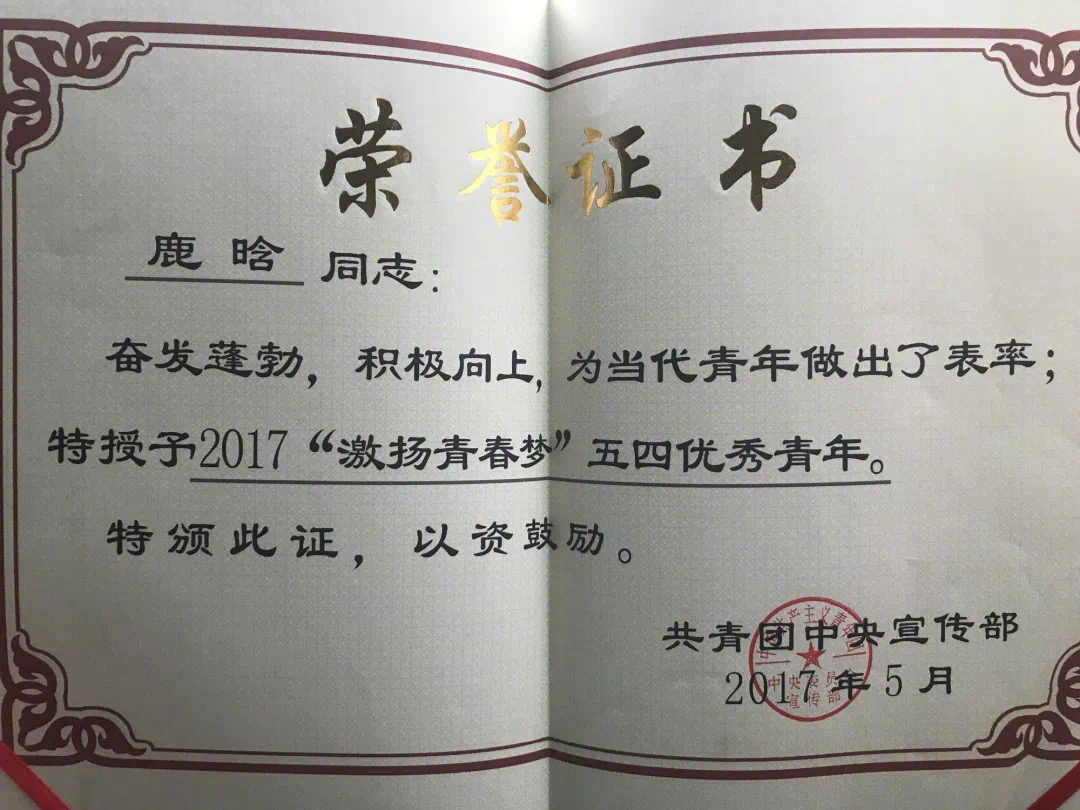 荣誉证书
鹿晗 同志：
奋发蓬勃，积极向上，为当代青年做出了表率；
特授予2017“激扬青春梦”五四优秀青年。
特颁此证，以资鼓励。
共青团中央宣传部
2017年5月
中央委员会
宣传部